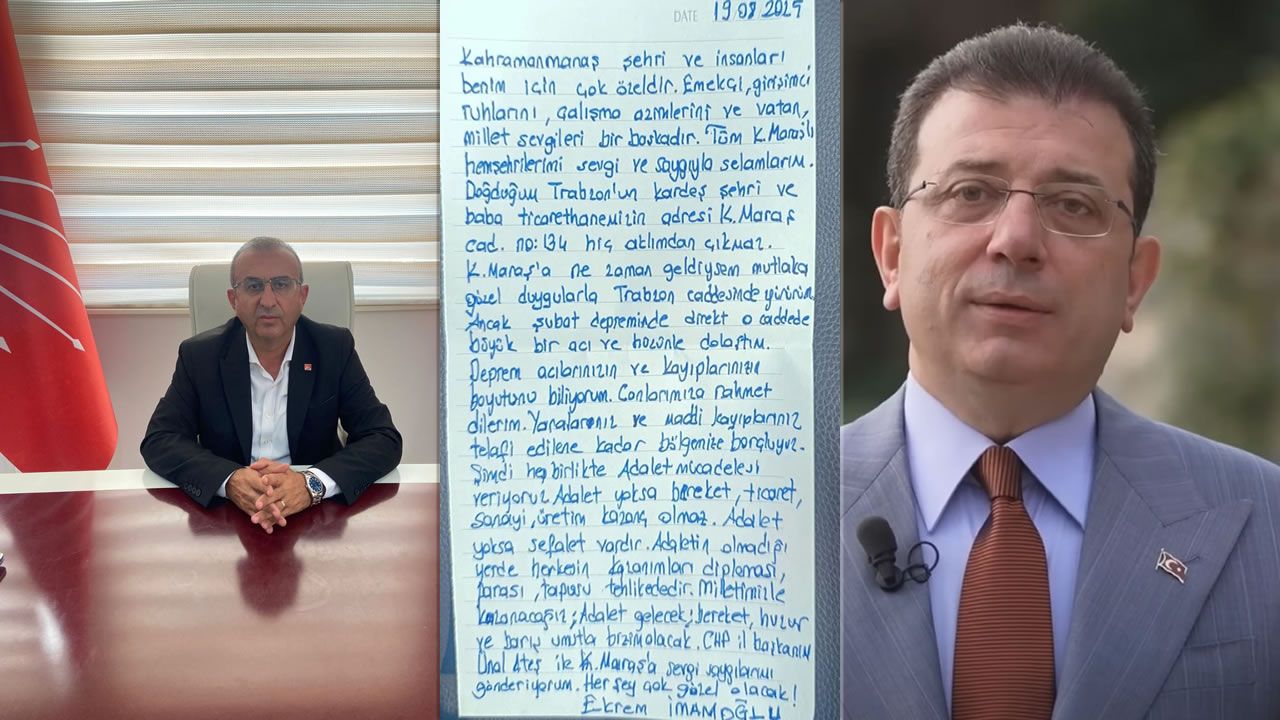 DATE 19 08 2025
Kahramanmaraş şehri ve insanları
benim için çok özeldir. Emekçi, girişimci
ruhlarını, çalışma azimlerini ve vatan,
millet sevgileri bir başkadır. Tüm K.Maraşlı
hemşehrilerimi sevgi ve saygıyla selamlarım.
Doğduğum Trabzon'un kardeş şehri ve
baba ticarethanemizin adresi K.Maraş
cad. no: 134 hiç aklımdan çıkmaz.
K.Maraş'a ne zaman geldiysem mutlaka
güzel duygularla Trabzon caddesinde yürürüm
Ancak şubat depreminde direkt o caddede
büyük bir acı ve hüzünle dolaştım.
Deprem acılarınızın ve kayıplarınızın
boyutunu biliyorum. Canlarımıza rahmet
dilerim. Yaralarınız ve maddi kayıplarınız
telafi edilene kadar bölgenize borçluyuz.
Şimdi hep birlikte Adalet mücadelesi
veriyoruz Adalet yoksa bereket, ticaret,
sanayi, üretim kazanç olmaz. Adalet
yoksa sefalet vardır. Adaletin olmadığı
yerde herkesin kazanımları diploması,
parası, tapusu tehlikededir. Milletimizle
kazanacağız; Adalet gelecek; bereket, huzur
ve barış umutla bizim olacak. CHP il başkanım
Ünal Ateş ile K.Maraş'a sevgi saygılarımı
gönderiyorum. Her şey çok güzel olacak!
Ekrem İMAMOĞLU